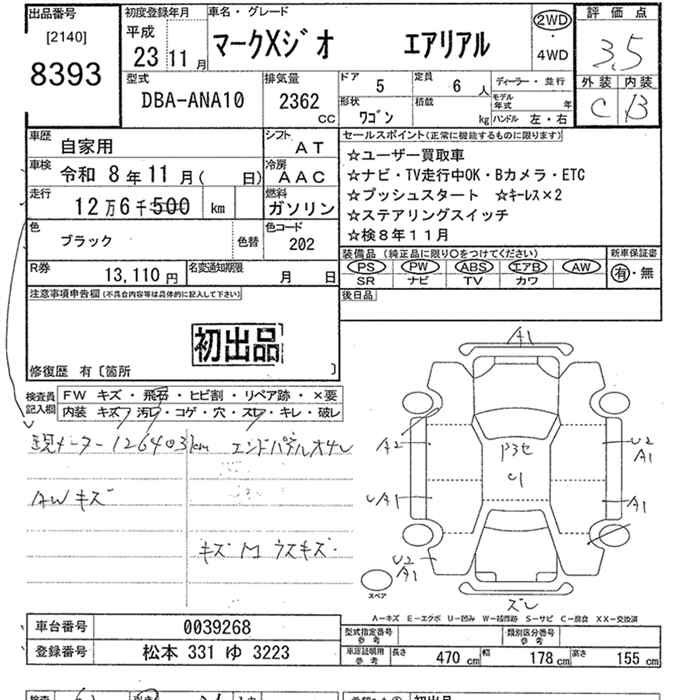 出品番号 初度登録年月 車名・グレード 評価点
[2140] 平成 マークXジオ エアリアル 2WD ・ 4WD 3.5
8393 23 11月 外装 内装
型式 排気量 ドア 5 定員 6 人 ディーラー・並行 C B
DBA-ANA10 2362 CC 形状 ワゴン 積載 kg モデル年式 年 ハンドル 左・右
車歴 自家用 シフト AT セールスポイント(正常に機能するものに限ります)
車検 令和 8年 11月( 日) 冷房 AAC ☆ユーザー買取車
走行 12万6千500 km 燃料 ガソリン ☆ナビ・TV走行中OK・Bカメラ・ETC
☆プッシュスタート ☆キーレス×2
☆ステアリングスイッチ
☆検8年11月
色 ブラック 色替 色コード 202
装備品(純正品に限り○をつけてください) 新車保証書
R券 13,110円 名変通知期限 月 日 PS PW ABS エアB AW 有・無
SR ナビ TV カワ
注意事項申告欄(不具合内容等は具体的に記入して下さい) 後日品
初出品
修復歴 有〔箇所 〕
検査員記入欄 FW キズ・飛石・ヒビ割・リペア跡・×要
内装 キズ・汚レ・コゲ・穴・スレ・キレ・破レ
現メーター126403km エンドパネルオサレ
AWキズ
キズM ウスキズ
A1
A2 U2
A1
UA1 A1
U2
A1
ズレ
スペア
A-キズ E-エクボ U-凹み W-補修跡 S-サビ C-腐食 XX-交換済
車台番号 0039268 型式指定番号 参考 類別区分番号 参考
登録番号 松本 331 ゆ 3223 車庫証明用 参考 長さ 470cm 幅 178cm 高さ 155cm
初出品